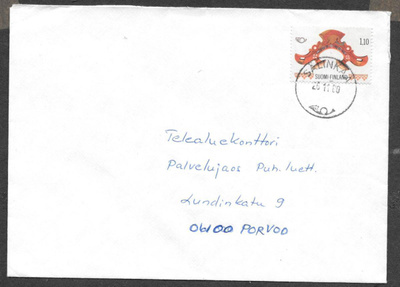 1.10
SUOMI-FINLAND
Telealuekonttori
Palvelujaos Puh.luett.
Lundinkatu 9
06100 PORVOO